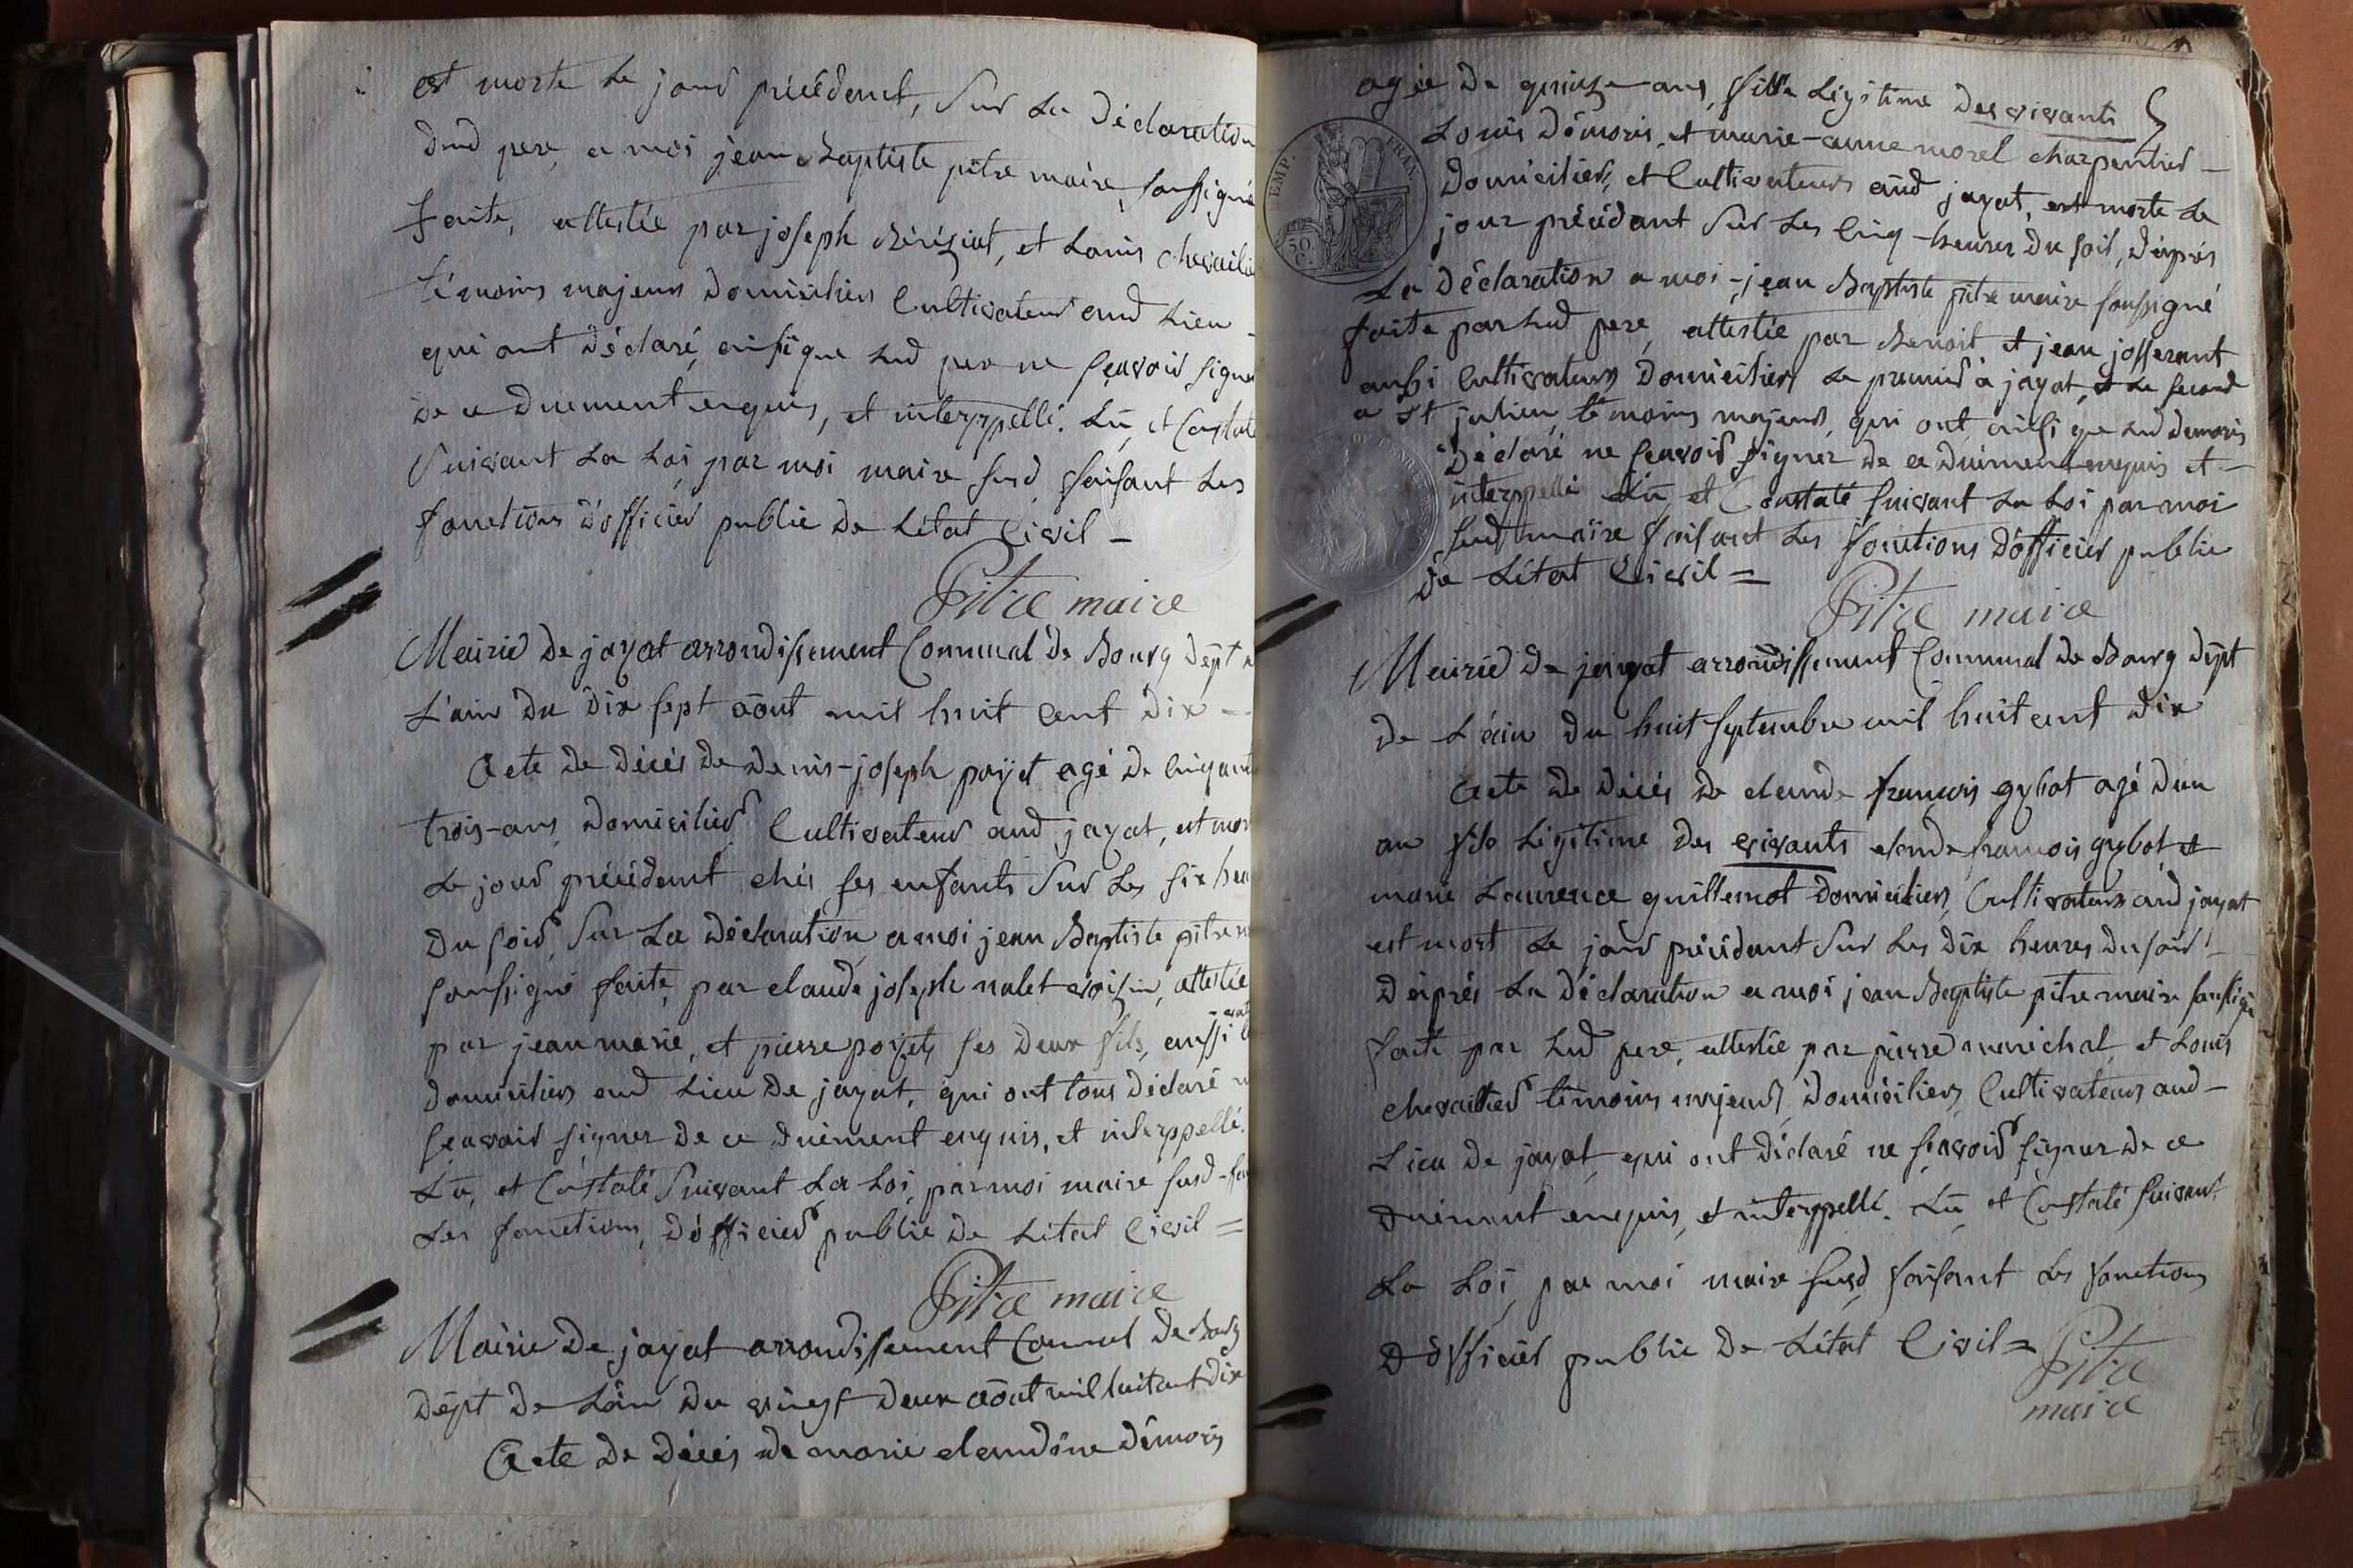 est morte le jour précédent, sur la déclaration
dud pere, a moi jean Baptiste pitre maire soussigné
faite, attestée par joseph Béréziat, et Louis chevailler
témoins majeurs domiciliés Cultivateurs aud Lieu -
qui ont déclaré, ainsi que lud pere ne sçavoir signer
de ce duement enquis, et interppellé. Lu, et Constaté
suivant La Loi par moi maire susd, faisant Les
fonctions d'officier public de L'état Civil -
Pitre maire
Mairie de jayat arrondissement Communal de Bourg dépt de
L'ain du dix sept août mil huit cent dix -
Acte de décès de denis-joseph payet agé de cinquante
trois-ans, domicilié Cultivateur aud jayat, est mort
Le jour précédent chés ses enfants sur Les six heures
du soir, sur La déclaration a moi jean Baptiste pitre
soussigné faite, par claude joseph nalet voisin, attestée
par jean marie, et pierre payet, ses deux fils, aussi
domiciliés aud Lieu de jayat, qui ont tous déclaré
sçavoir signer de ce duëment enquis, et interppellé.
Lu, et Constaté suivant La Loi, par moi maire susd -
Les fonctions, d'officier public de L'état Civil =
Pitre maire
Mairie de jayat arrondissement Comunal de Bourg
dépt de L'ain du vingt deux août mil huit cent dix
Acte de décès de marie claudine démoris
agée de quinze-ans, fille Légitime des vivants
Louis démoris, et marie-anne morel charpentier -
domiciliés, et Cultivateurs aud jayat, est morte Le
jour précédant sur Les Cinq-heures du soir, d'après
La déclaration a moi - jean Baptiste pitre maire soussigné
faite par Lud pere, attestée par Benoit et jean josserant
aussi Cultivateurs domiciliés Le premier à jayat, et Le second
a st julien, témoins majeurs, qui ont, ainsi que Lud demoris
déclaré ne sçavoir signer de ce duëment enquis et -
interppellé Lu, et Constaté suivant La Loi par moi
susd maire faisant Les fonctions d'officier public
de L'état Civil =
Pitre maire
Mairie de jayat arrondissement Communal de Bourg dépt
de L'ain du huit septembre mil huit cent dix
Acte de décès de claude françois gybot agé d'un
an fils Légitime des vivants claude françois gybot et
marie Laurence guillemot domiciliés, Cultivateurs aud jayat
est mort Le jour précédant sur Les dix heures du soir -
d'après La déclaration a moi jean Baptiste pitre maire soussigné
faite par Lud pere, attestée par pierre maréchal, et Louis
chevailler témoins majeurs, domiciliés, Cultivateurs aud -
Lieu de jayat, qui ont déclaré ne sçavoir signer de ce
duëment enquis, et interppellé. Lu, et Constaté suivant
La Loi, par moi maire susd, faisant Les fonctions
d'officier public de L'état Civil =
Pitre
maire